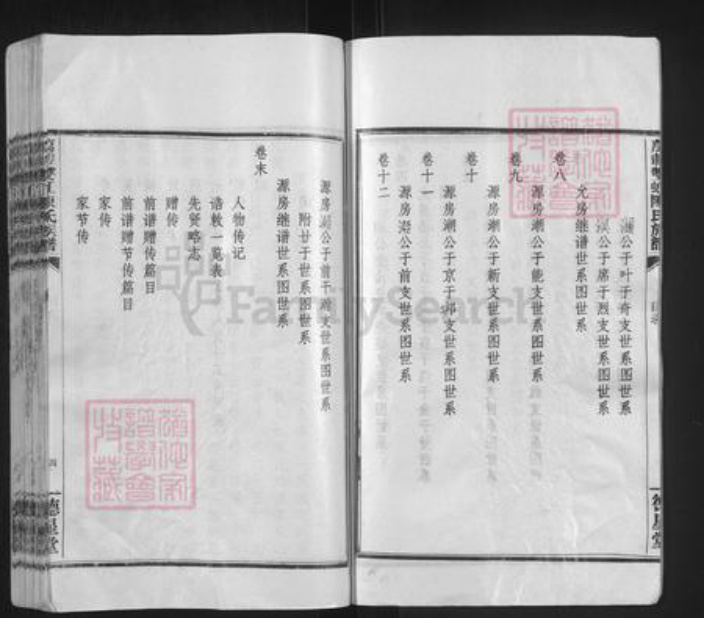 公于叶于奇支世系图世系
公于席于烈支世系图世系
允房继谱世系图世系
卷八
源房潮公于能支世系图世系
卷九
源房潮公于新支世系图世系
卷十
源房潮公于京于邦支世系图世系
卷十一
源房公于前支世系图世系
卷十二
源房公于前于支世系图世系
附廿于世系图世系
源房继谱世系图世系
卷末
人物传记
诰敕一览表
先贤略志
赠传
前谱赠传篇目
前谱赠节传篇目
家传
家节传
四
德星堂
德星堂
FamilySearch